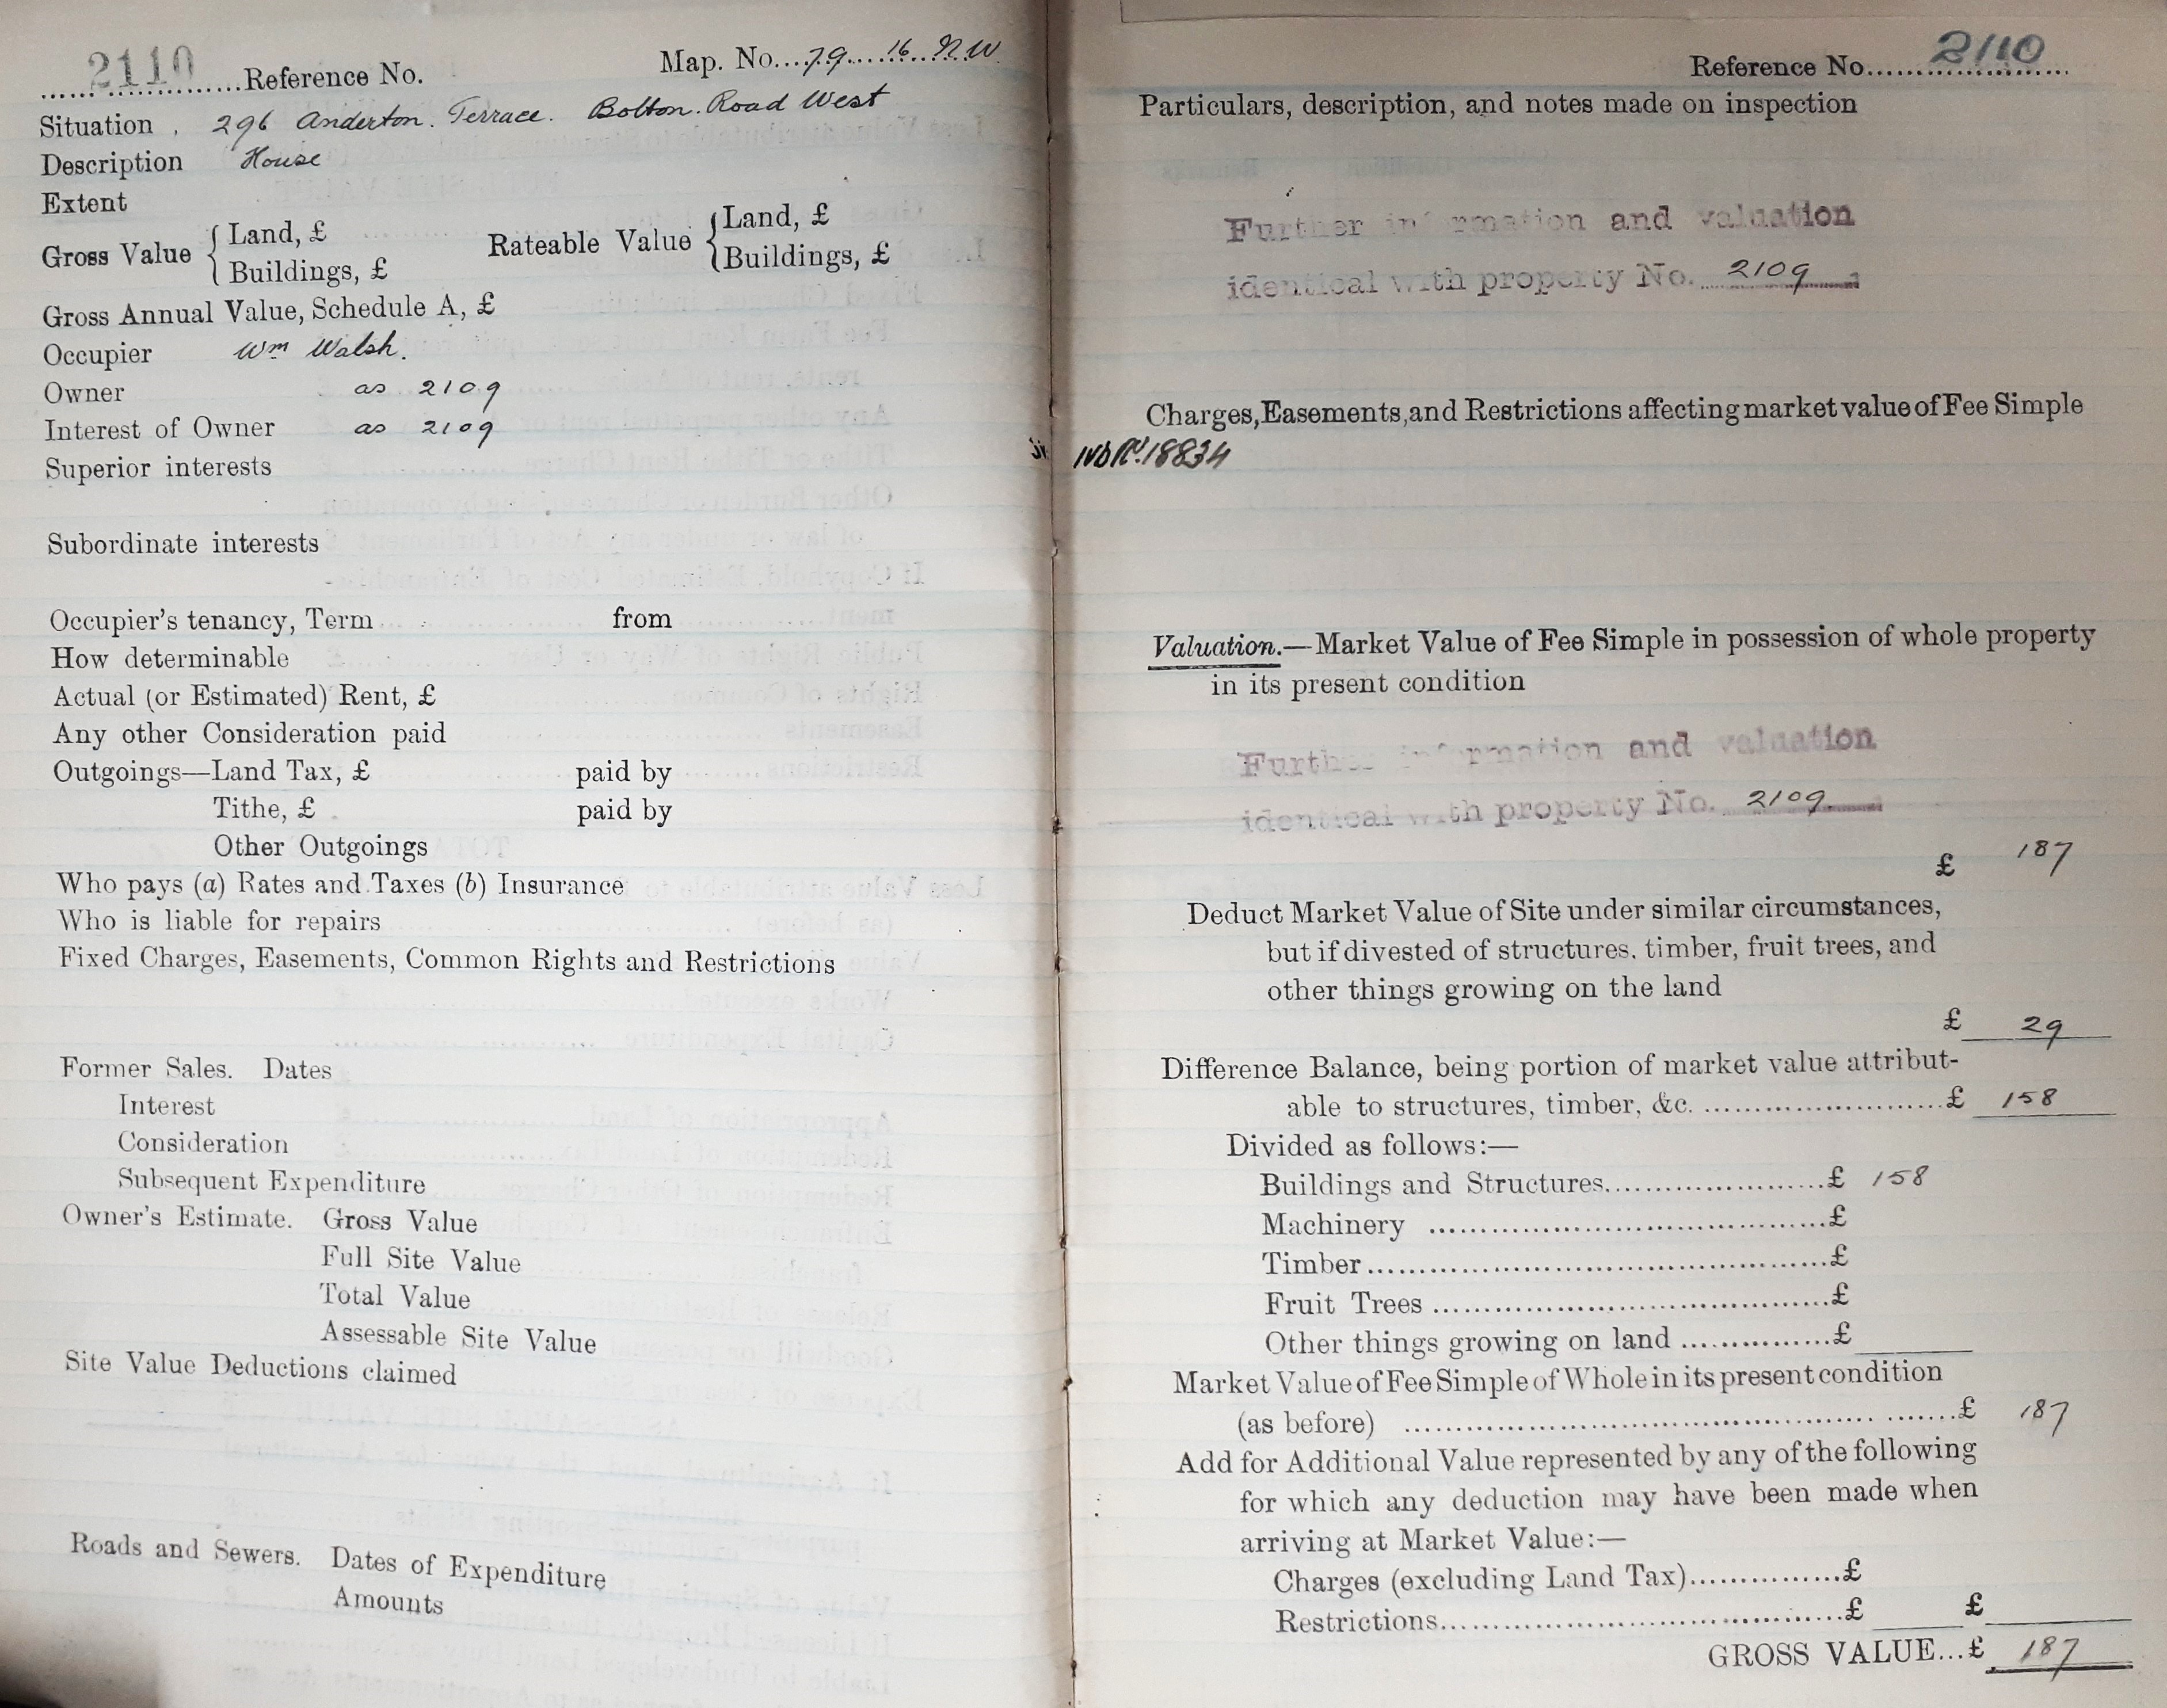 2110 Reference No. Map. No. 79 16 N.W.
Situation 296 Anderton. Terrace. Bolton. Road West
Description House
Extent
Gross Value { Land, £ Rateable Value { Land, £
Buildings, £ Buildings, £
Gross Annual Value, Schedule A, £
Occupier Wm Walsh.
Owner as 2109
Interest of Owner as 2109
Superior interests
Subordinate interests
Occupier's tenancy, Term from
How determinable
Actual (or Estimated) Rent, £
Any other Consideration paid
Outgoings—Land Tax, £ paid by
Tithe, £ paid by
Other Outgoings
Who pays (a) Rates and Taxes (b) Insurance
Who is liable for repairs
Fixed Charges, Easements, Common Rights and Restrictions
Former Sales. Dates
Interest
Consideration
Subsequent Expenditure
Owner's Estimate. Gross Value
Full Site Value
Total Value
Assessable Site Value
Site Value Deductions claimed
Roads and Sewers. Dates of Expenditure
Amounts
Reference No. 2110
Particulars, description, and notes made on inspection
Further information and valuation
identical with property No. 2109
Charges, Easements, and Restrictions affecting market value of Fee Simple
18834
Valuation.—Market Value of Fee Simple in possession of whole property
in its present condition
Further information and valuation
identical with property No. 2109
£ 187
Deduct Market Value of Site under similar circumstances,
but if divested of structures, timber, fruit trees, and
other things growing on the land
£ 29
Difference Balance, being portion of market value attribut-
able to structures, timber, &c. £ 158
Divided as follows:—
Buildings and Structures £ 158
Machinery £
Timber £
Fruit Trees £
Other things growing on land £
Market Value of Fee Simple of Whole in its present condition
(as before) £ 187
Add for Additional Value represented by any of the following
for which any deduction may have been made when
arriving at Market Value:—
Charges (excluding Land Tax) £
Restrictions £ £
GROSS VALUE...£ 187